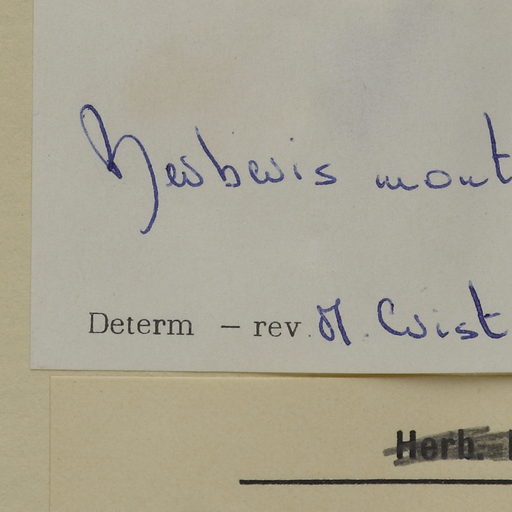 Berberis mont
Determ – rev. M. Crist
Herb.